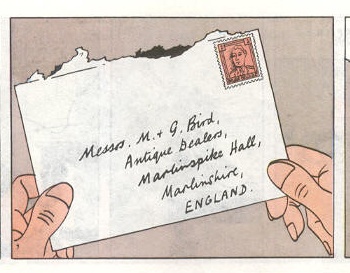 Messrs. M. + G. Bird,
Antique Dealers,
Marlinspike Hall,
Marlinshire,
ENGLAND.